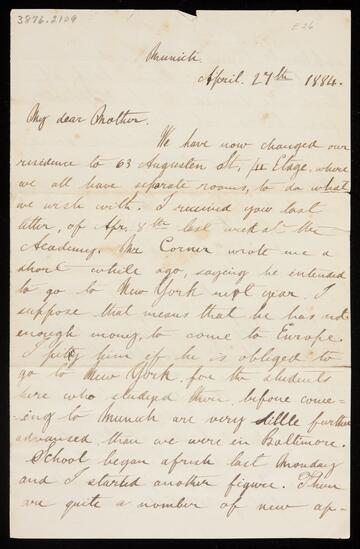 3876.2109
E26
Munich.
April. 27th 1884.
My dear Mother.
We have now changed our
residence to 63 Augusten St, III Etage, where
we all have separate rooms, to do what
we wish with. I received your last
letter, of Apr. 8th last week at the
Academy. Mr Corner wrote me a
short while ago, saying he intended
to go to New York next year. I
suppose that means that he has not
enough money, to come to Europe.
I pity him if he is obliged to
go to New York. for the students
here who studied there before come-
-ing to Munich are very little further
advanced than we were in Baltimore.
School began afresh last Monday
and I started another figure. There
are quite a number of new ap-